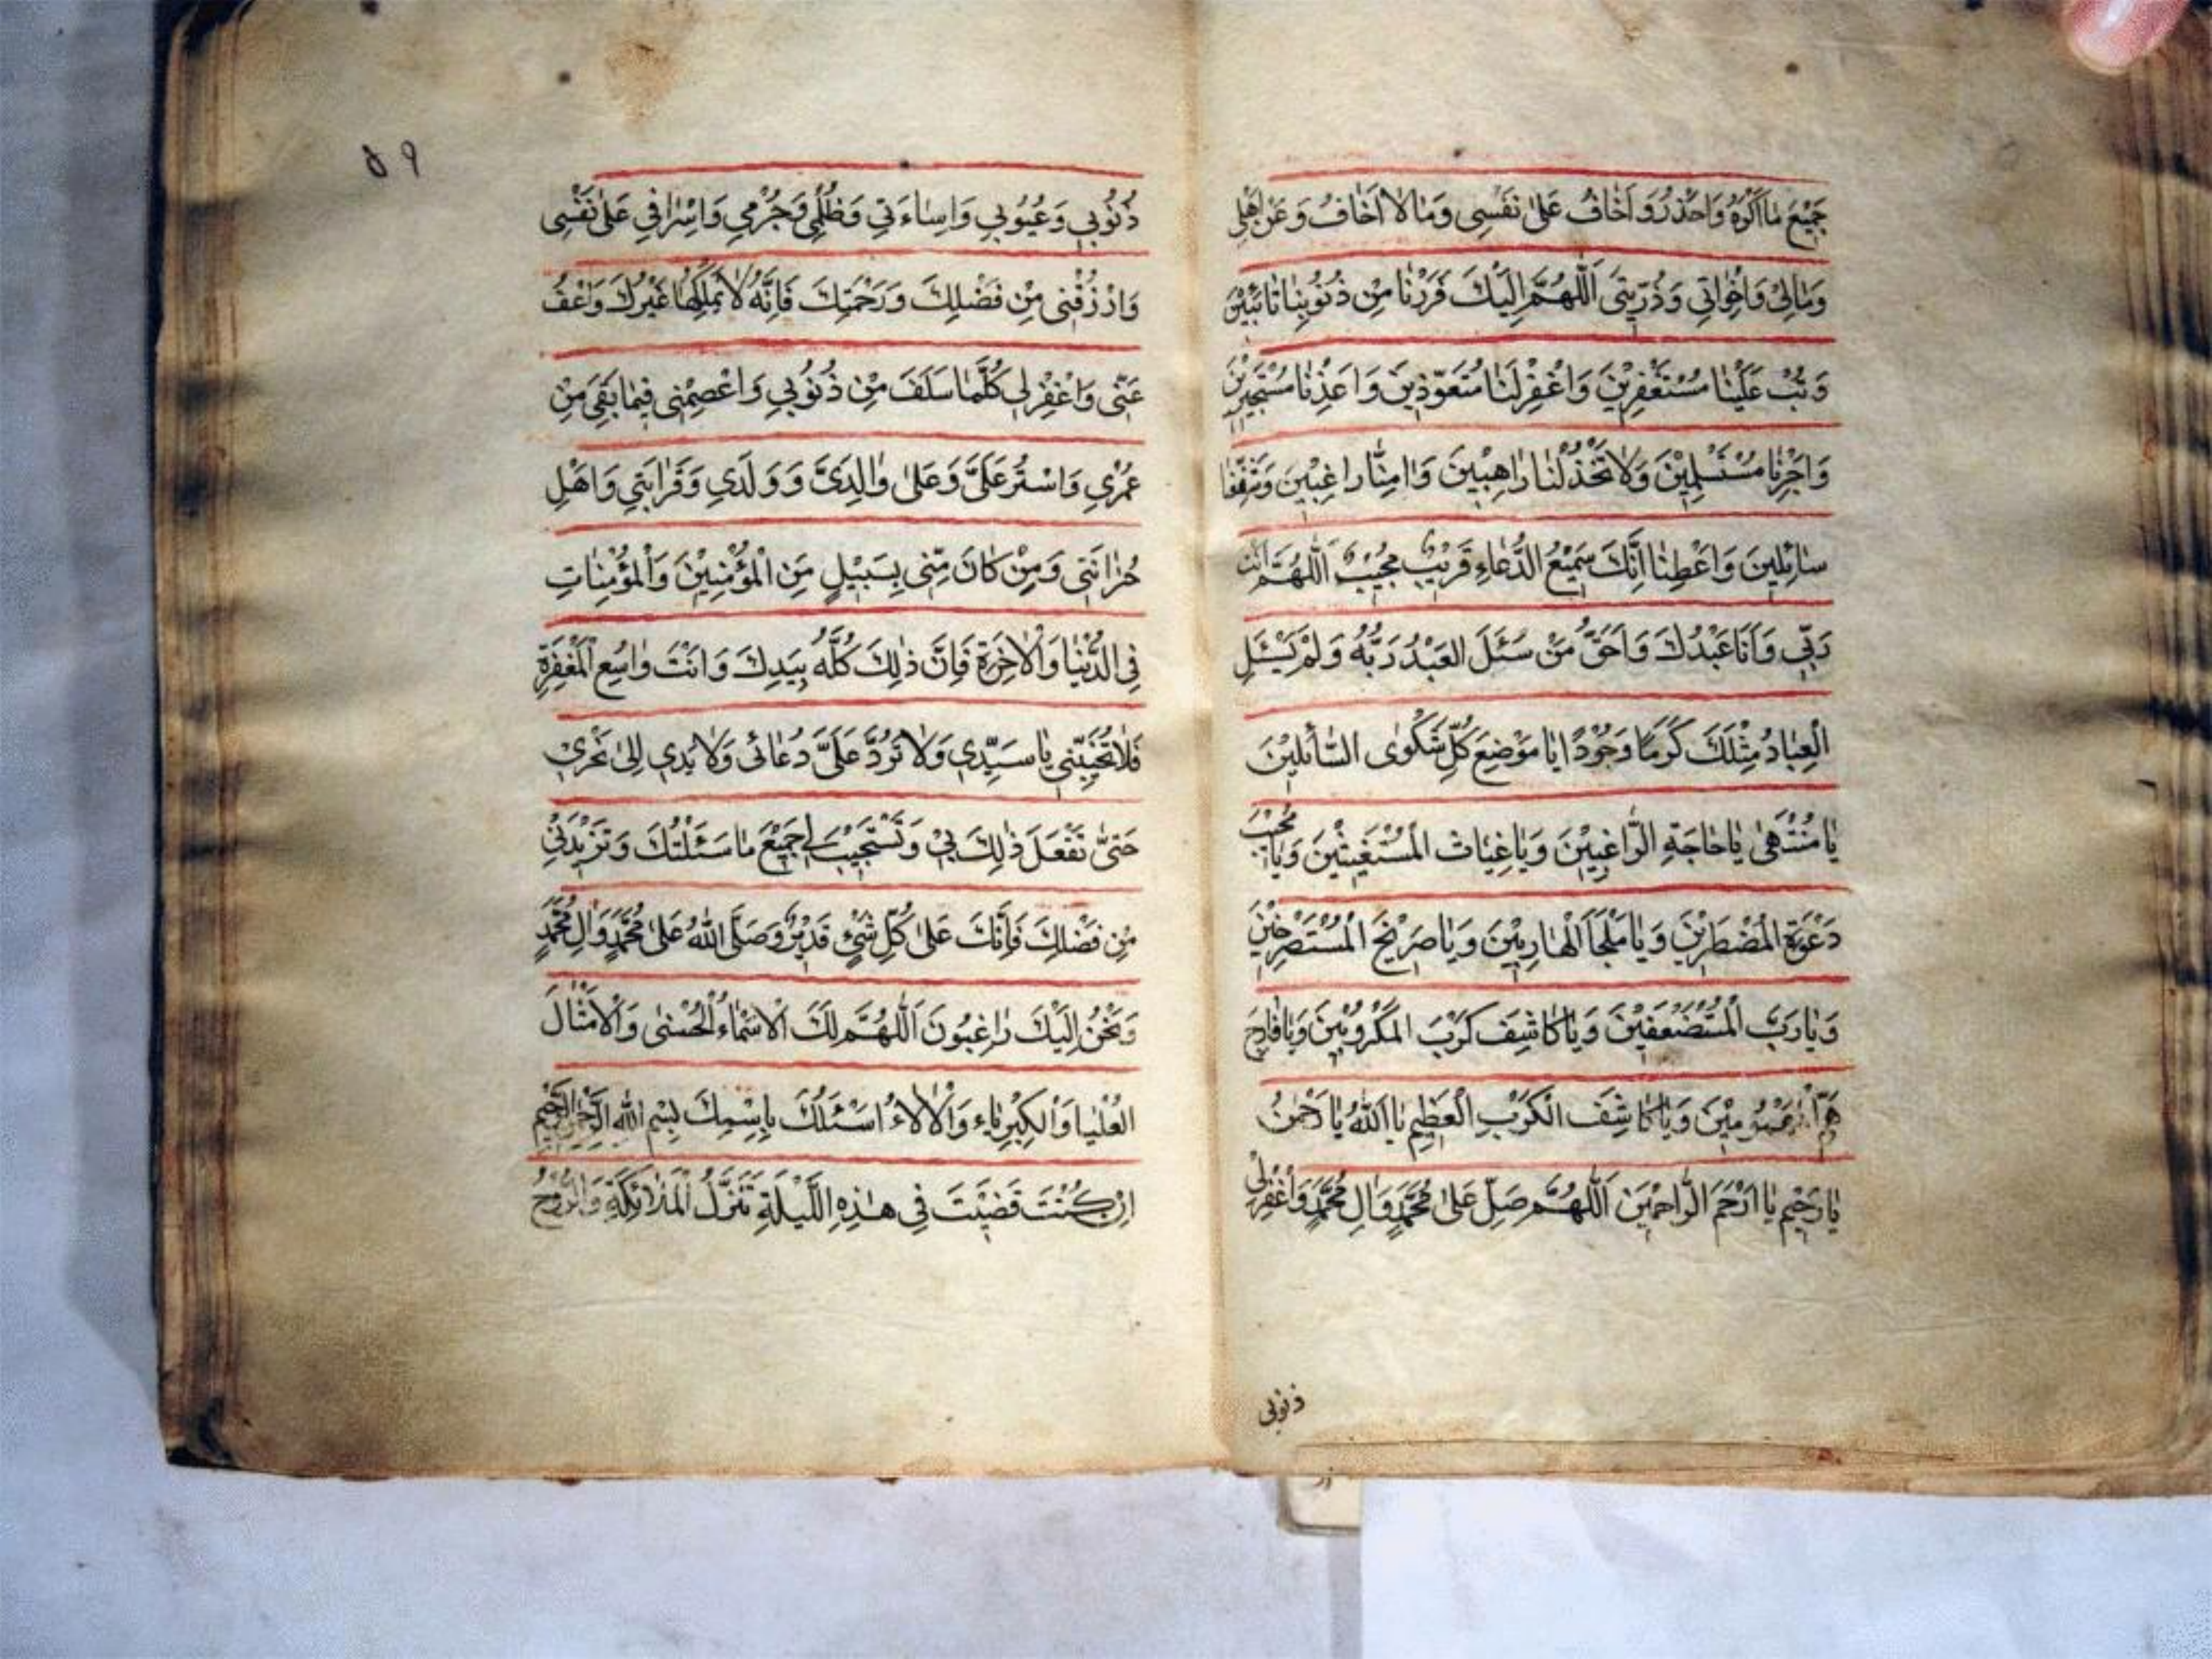 جَمِيْعَ مٰا اَكْرَهُ وَاَحْذَرُ وَ اَخٰافُ عَلىٰ نَفْسِى وَمٰا لاٰ اَخٰافُ وَ عَنْ اَهْلِى
وَمٰالِىْ وَاِخْوٰاتِي وَذُرِّيَتِى اَللّٰهُمَّ اِلَيْكَ فَرَرْنٰا مِنْ ذُنُوُبِنٰا تٰائِبيْنَ
وَ تُبْ عَلَيْنٰا مُسْتَغْفِرِيْنَ وَاغْفِرْلَنٰا مُتَعَوِّذِينَ وَاَعِذْنٰا مُسْتَجيرِيْنَ
وَاَجِرْنٰا مُسْتَسْلِمِيْنَ وَلاٰ تَخْذُلْنٰا رٰاهِبْيِنَ وَاٰمِنّٰا رٰاغِبْيِنَ وَشَفِّعْنٰا
سٰائِلينَ وَاَعْطِنٰا اِنَّكَ سَمْيِعُ الدُّعٰاءِ قَرْيِبٌ مُجْيِبٌ اَللّٰهُمَّ اَنْتَ
رَبّي وَاَنَا عَبْدُكَ وَاَحَقُّ مَنْ سَئَلَ العَبْدُ رَبُّهُ وَلَمْ يَسْئَلِ
الْعِبٰادُ مِثْلَكَ كَرَمًا وَجُوْدًا يٰا مَوْضِعَ كُلِّ شَكْوٰى السّٰائِليْنَ
يٰا مُنْتَهىٰ يٰا حٰاجَةِ الرّٰاغِبيْنَ وَيٰا غِيٰاثَ الْمُسْتَغيثْيِنَ وَيٰا مُجْيِبَ
دَعْوَةِ الْمُضْطَرّيْنَ وَيٰا مَلْجَاَ الْهٰارِبيْنَ وَيٰا صَرْيِخَ الْمُسْتَصْرِخيْنَ
وَيٰا رَبَّ الْمُسْتَضْعَفيْنَ وَيٰا كٰاشِفَ كَرْبَ المَكْرُوْبْينَ وَيٰا فٰارِجَ
هَمِّ الْمَهْمُومْيِنَ وَيٰا كٰاشِفَ الْكَرْبِ الْعَظيمِ يٰا اَللّٰهُ يٰا رَحْمٰنُ
يٰا رَحْيِمُ يٰا اَرْحَمَ الرّٰاحِمْيَن اَللّٰهُمَّ صَلِّ عَلىٰ مُحَمَّدٍ وَ اٰلِ مُحَمَّدٍ وَاغْفِرْلى
ذنوبى
٥٩
ذُنُوُبي وَعُيُوُبي وَاِسٰاءَتي وَظُلْمِي وَجُرْمي وَاِسْرٰافي عَلىٰ نَفْسِى
وَارْزُقْنِى مِنْ فَضْلِكَ وَرَحْمَتِكَ فَاِنَّهُ لاٰ يَمْلِكُهٰا غَيْرُكَ وَاعْفُ
عَنّى وَاغْفِرْلي كُلَّمٰا سَلَفَ مِنْ ذُنُوُبي وَاعْصِمْنى فيمٰا بَقِىَ مِنْ
عُمْري وَاسْتُرْ عَلَىَّ وَعَلىٰ وٰالِدَىَّ وَ وَلَدي وَقَرٰابَتي وَاَهْلِ
حُزٰانَتى وَمَنْ كٰانَ مِنّى بِسَبْيِلٍ مِنَ الْمُؤْمِنيْنَ وَالْمُؤْمِنٰاتِ
فِى الدُّنْيٰا وَالْاٰخِرَةِ فَاِنَّ ذٰلِكَ كُلَّهُ بِيَدِكَ وَ اَنْتَ وٰاسِعُ الْمَغْفِرَةِ
فَلاٰ تُخَيِّبْنى يٰا سَيِّدي وَلاٰ تَرُدَّ عَلَىَّ دُعٰائى وَلاٰ يَدي اِلىٰ نَحْرى
حَتّىٰ تَفْعَلَ ذٰلِكَ بي وَتَسْتَجْيِبَ لي جَمْيِعَ مٰا سَئَلْتُكَ وَتَزْيدَنى
مِن فَضْلِكَ فَاِنَّكَ عَلىٰ كُلِّ شَيْءٍ قَديْرٌ وَصَلَّى اللّٰهُ عَلىٰ مُحَمَّدٍ وَ اٰلِ مُحَمَّدٍ
وَنَحْنُ اِلَيْكَ رٰاغِبُونَ اَللّٰهُمَّ لَكَ الْاَسْمٰاءُ الْحُسْنىٰ وَالْاَمْثٰالَ
العُلْيٰا وَالْكِبْرِيٰاء وَالْاٰلاٰءُ اَسْئَلُكَ بِاِسْمِكَ بِسْمِ اللّٰهِ الرَّحْمٰنِ الرَّحْيِمِ
اِنْ كُنْتَ قَضَيْتَ فى هٰذِهِ اللَّيْلَةِ تَنَزُّلَ الْمَلاٰئِكَةِ وَالرُّوْحُ